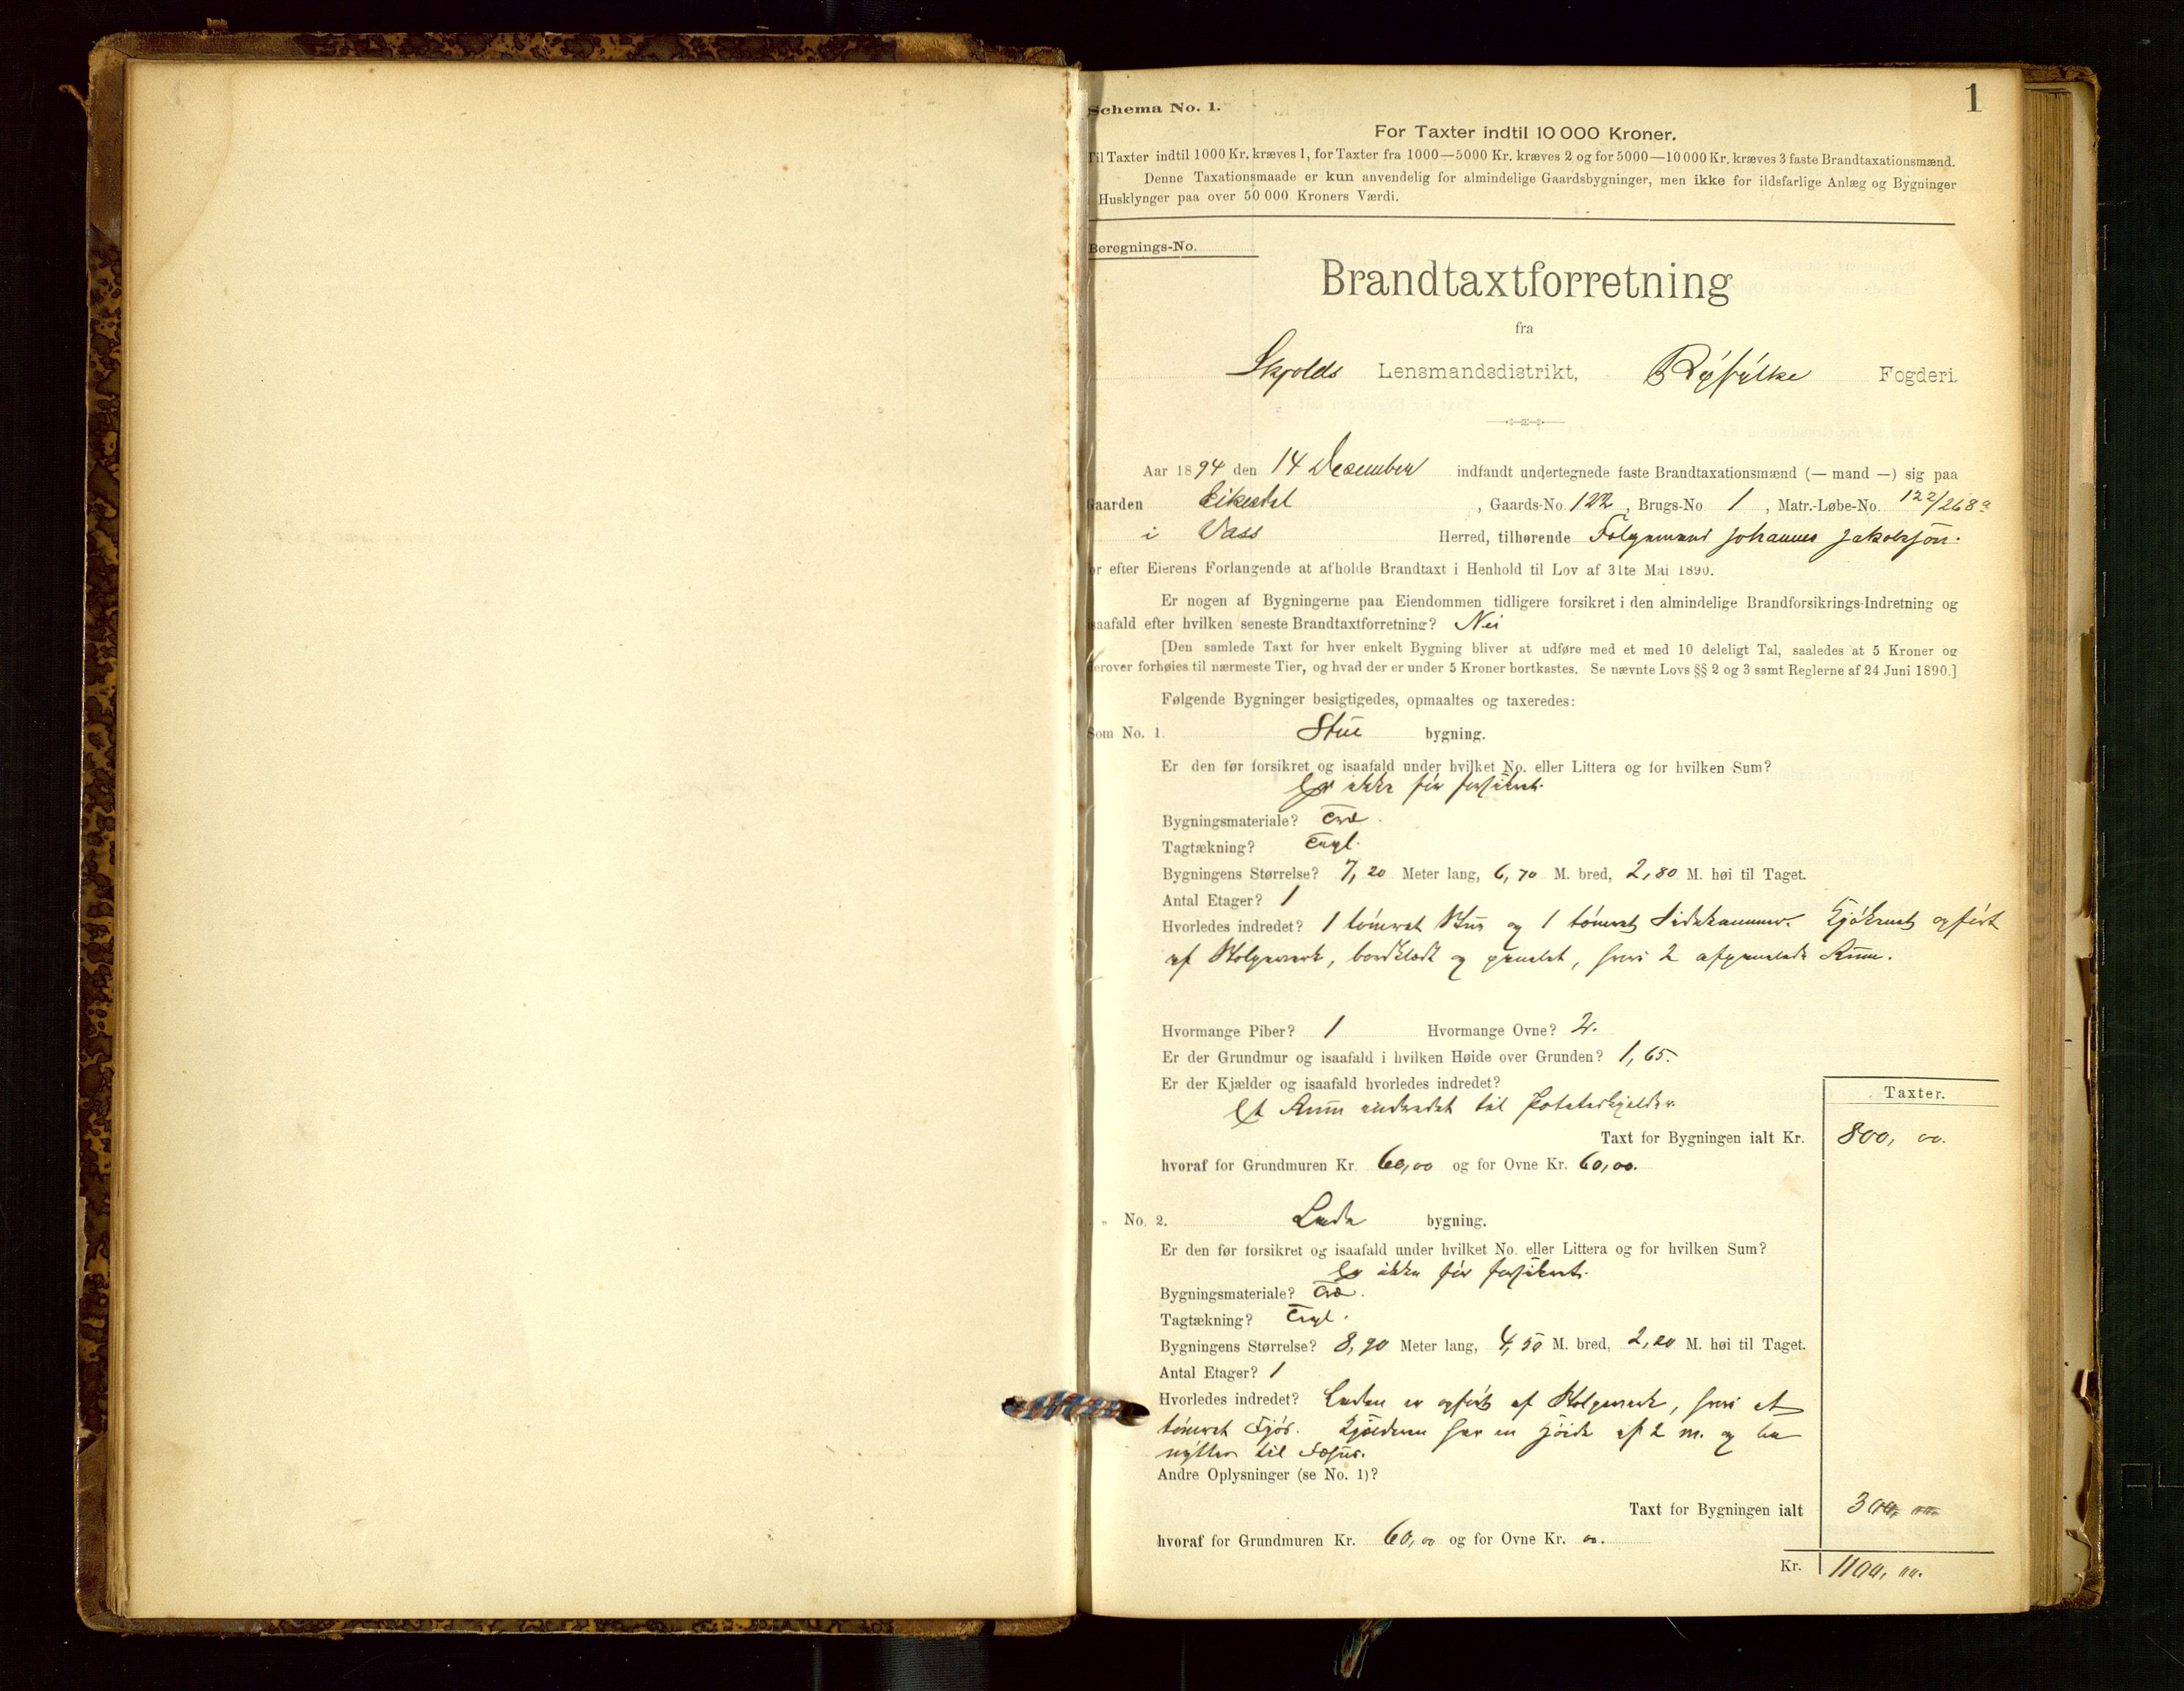 1
Schema No. 1.
For Taxter indtil 10 000 Kroner.
Til Taxter indtil 1000 Kr. kræves 1, for Taxter fra 1000—5000 Kr. kræves 2 og for 5000—10 000 Kr. kræves 3 faste Brandtaxationsmænd.
Denne Taxationsmaade er kun anvendelig for almindelige Gaardsbygninger, men ikke for ildsfarlige Anlæg og Bygninger
i Husklynger paa over 50 000 Kroners Værdi.
Beregnings-No.
Brandtaxtforretning
fra
Skjolds Lensmandsdistrikt, Ryfylke Fogderi.
Aar 1894 den 14 Desember indfandt undertegnede faste Brandtaxationsmænd (— mand —) sig paa
Gaarden Eikedal, Gaards-No. 122, Brugs-No 1, Matr.-Løbe-No. 122/268a
i Vass Herred, tilhørende Johannes Jakobson.
for efter Eierens Forlangende at afholde Brandtaxt i Henhold til Lov af 31te Mai 1890.
Er nogen af Bygningerne paa Eiendommen tidligere forsikret i den almindelige Brandforsikrings-Indretning og
isaafald efter hvilken seneste Brandtaxtforretning? Nei
[Den samlede Taxt for hver enkelt Bygning bliver at udføre med et med 10 deleligt Tal, saaledes at 5 Kroner og
derover forhøies til nærmeste Tier, og hvad der er under 5 Kroner bortkastes. Se nævnte Lovs §§ 2 og 3 samt Reglerne af 24 Juni 1890.]
Følgende Bygninger besigtigedes, opmaaltes og taxeredes:
Som No. 1. Stue bygning.
Er den før forsikret og isaafald under hvilket No. eller Littera og for hvilken Sum?
Er ikke før forsikret.
Bygningsmateriale? Træ.
Tagtækning? Tegl.
Bygningens Størrelse? 7,20 Meter lang, 6,70 M. bred, 2,80 M. høi til Taget.
Antal Etager? 1
Hvorledes indredet? 1 tømret Stue og 1 tømret Sidekammer. Kjøkenet opført
af Stolpeverk, bordklædt og panelet, hvori 2 afpanelede Rum.
Hvormange Piber? 1 Hvormange Ovne? 2.
Er der Grundmur og isaafald i hvilken Høide over Grunden? 1,65.
Er der Kjælder og isaafald hvorledes indredet?
Et Rum indredet til Poteteskjelder.
Taxter.
Taxt for Bygningen ialt Kr. 800, 00.
hvoraf for Grundmuren Kr. 60,00 og for Ovne Kr. 60,00.
" No. 2. Lade bygning.
Er den før forsikret og isaafald under hvilket No. eller Littera og for hvilken Sum?
Er ikke før forsikret.
Bygningsmateriale? Træ.
Tagtækning? Tegl.
Bygningens Størrelse? 8,90 Meter lang, 4,50 M. bred, 2,20 M. høi til Taget.
Antal Etager? 1
Hvorledes indredet? Laden er opført af Stolpeverk, hvori et
tømret Fjøs. Kjælderen har en Høide af 2 m. og be-
nyttes til Fæhus.
Andre Oplysninger (se No. 1)?
Taxt for Bygningen ialt 300, 00
hvoraf for Grundmuren Kr. 60,00 og for Ovne Kr. 00.
Kr. 1100, 00.